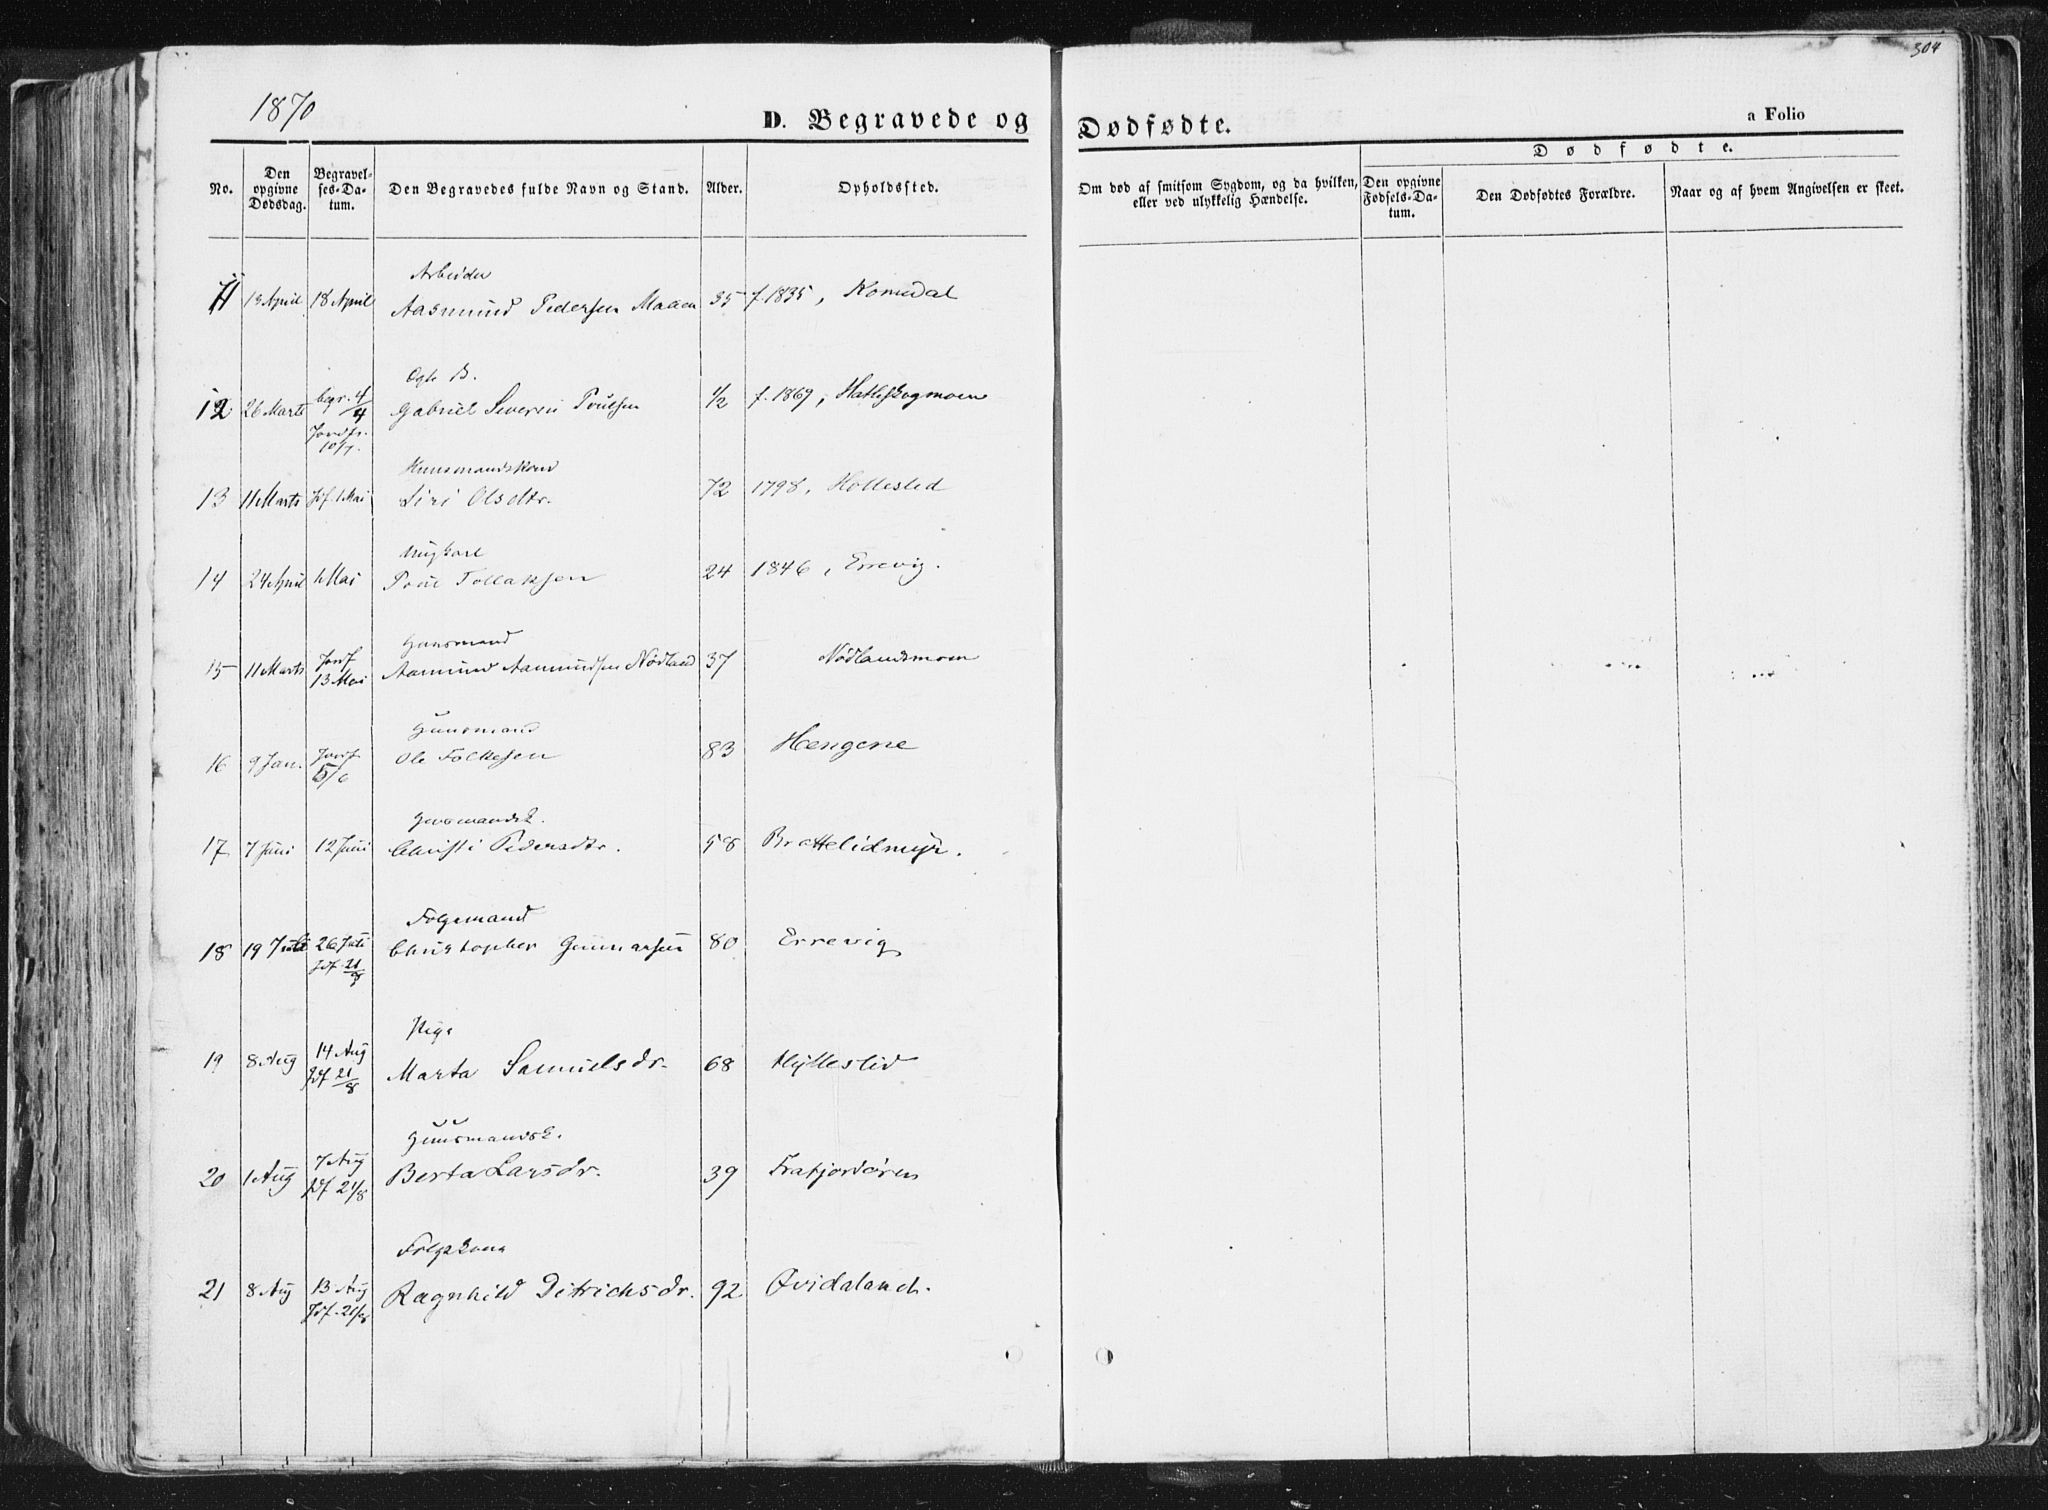 304
1870
D. Begravede og Dødfødte.
a Folio
No.
Den opgivne Dødsdag.
Begravel-
ses-Da-
tum.
Den Begravedes fulde Navn og Stand.
Alder.
Opholdssted.
Om død af smitsom Sygdom, og da hvilken,
eller ved ulykkelig Hændelse.
Dødfødte.
Den opgivne
Fødsels-Da-
tum.
Den Dødfødtes Forældre.
Naar og af hvem Angivelsen er skeet.
Arbeider
11 13 April 18 April Aasmund Pedersen Maaen 35 f. 1835, Komedal
Ægte B.
12 26 Marts begr. 4/4 Gabriel Severin Poulsen 1/2 f. 1869, Hatleskogmoen
Jordf.
13 11 Marts Jdf. 1 Mai Siri Olsdtr. 72 1798, Hollesled
Ungkarl
14 24 April 1 Mai Poul Tollaksen 24 1846, Errevig.
Huusmand
15 11 Marts Jordf 13 Mai Aasmund Aasmundsen Nødland 37 Nødlandsmoen
Huusmand
16 9 Jan. Jordf 5/6 Ole Folkesen 83 Hengene
Huusmandsk.
17 7 Juni 12 Juni Christi Pedersdtr. 58 Brattelidmyr.
Folgemand
18 19 Juli 26 Juli Christopher Gunnarsen 80 Errevig
Jdf. 21/8
Pige
19 8 Aug 14 Aug Marta Samuelsdr. 68 Hylleslid
Jdf 21/8
Huusmandsk.
20 1 Aug 7 Aug Berta Larsdr. 39 Frafjordøren
Jdf 21/8
Folgekone
21 8 Aug 13 Aug Ragnhild Ditrichsdr. 92 Øvidaland.
Jdf. 21/8